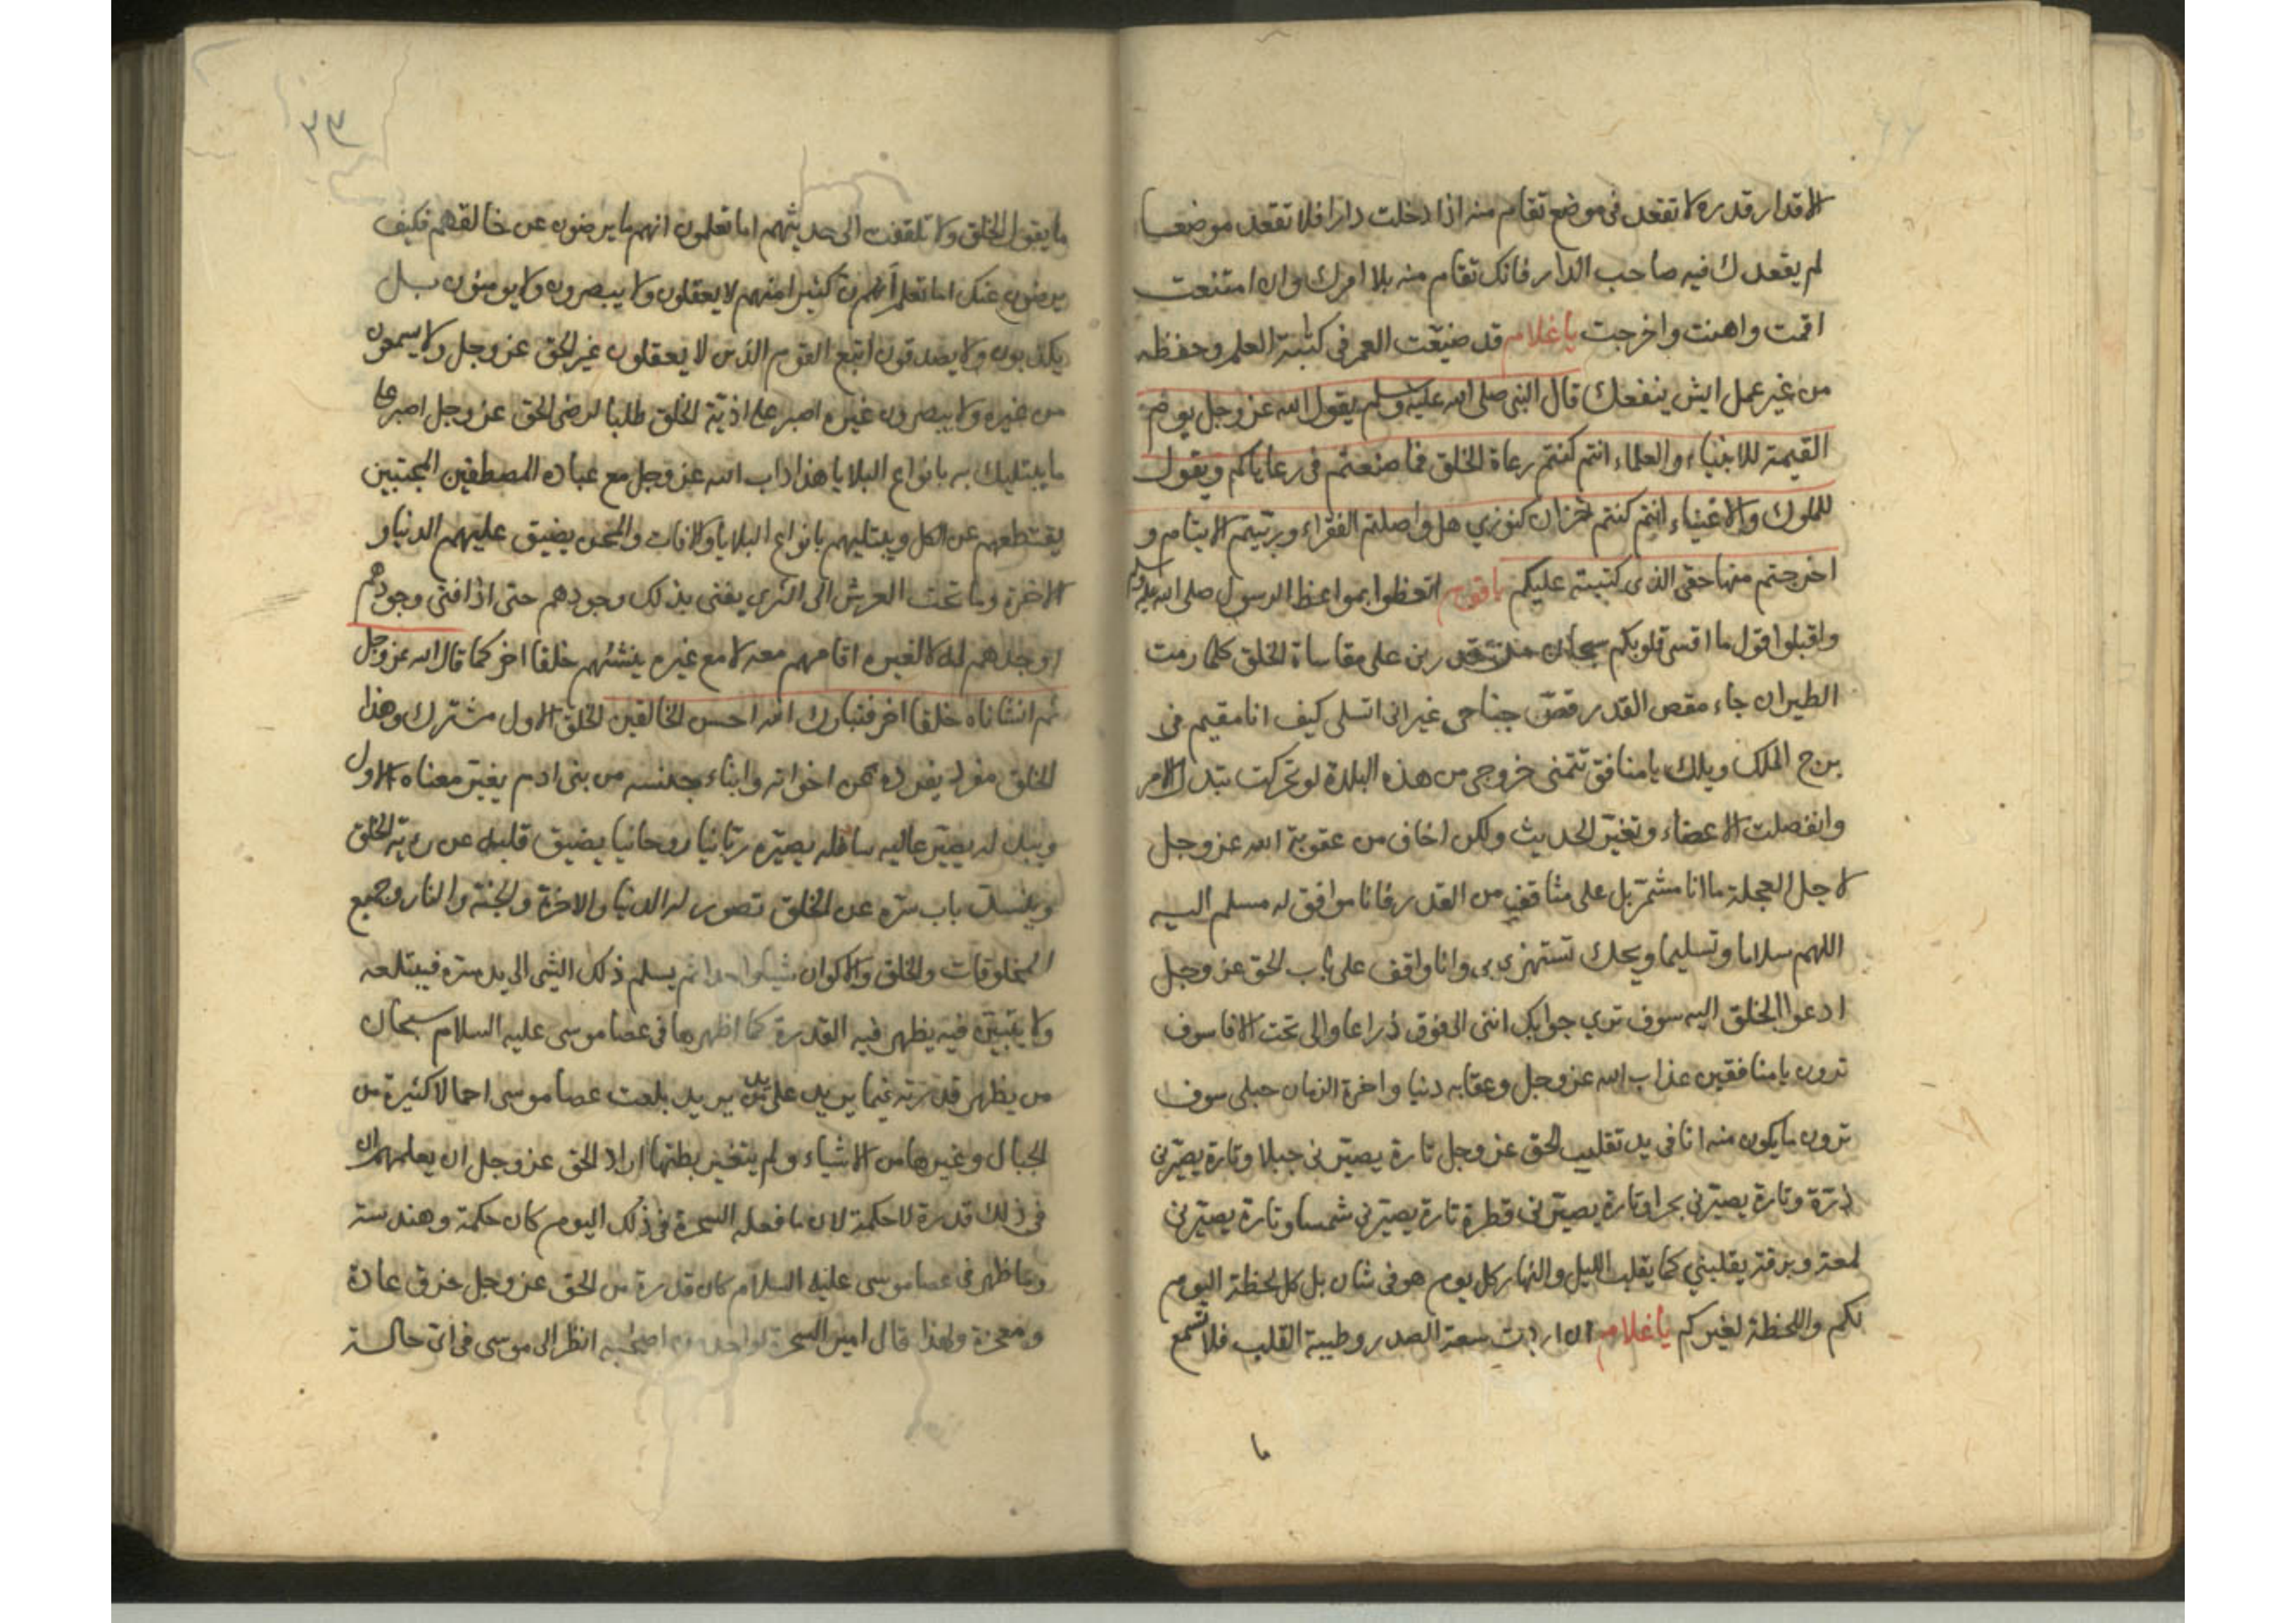 الاقدار قدره لا تقعد فى موضع تقام منه اذا دخلت دارا فلا تقعد موضعا
لم يقعدك فيه صاحب الدار فانك تقام منه بلا امرك وان امتنعت
اقمت واهنت واخرجت ياغلام قد ضيّعت العمر فى كتبة العلم وحفظه
من غير عمل ايش ينفعك قال النبى صلى الله عليه وسلم يقول الله عز وجل يوم
القيمة للانبياء والعلماء انتم كنتم رعاة الخلق فما صنعتم فى رعاياكم ويقول
للملوك والاغنياء انتم كنتم خزان كنوزي هل واصلتم الفقراء وربّيتم الايتام و
اخرجتم منها حقى الذى كتبته عليكم ياقوم اتعظوا بمواعظ الرسول صلى الله عليه وسلم
واقبلوا قول ما اقسى قلوبكم سبحان من قدرنى على مقاساة الخلق كلما رمت
الطيران جاء مقص القدر قصّ جناحى غير انى اتسلى كيف انا مقيم فى
برج الملك ويلك يا منافق تتمنى خروجى من هذه البلدة لو تحركت تبدل الامر
وانفصلت الاعضاء وتغيّر الحديث ولكن اخاف من عقوبة الله عز وجل
لاجل العجلة ما انا مشمّر بل على من القدر فانا موافق له مسلم اليه
اللهم سلاما وتسليما ويحك تستهزى بى وانا واقف على باب الحق عز وجل
ادعوا الخلق اليه سوف تري جوابك انى الى فوق ذراعا والى تحت الافا سوف
ترون يا منافقين عذاب الله عز وجل وعقابه دنيا واخرة الزمان حبلى سوف
ترون ما يكون منه انا فى يد تقليب الحق عز وجل تارة يصيّرنى جبلا وتارة يصيّرنى
ذرّة وتارة يصيّرنى بحرا وتارة يصيّرنى قطرة تارة يصيّرنى شمسا وتارة يصيّرنى
لمعة وبرقة يقلبني كما يقلب الليل والنهار كل يوم هو فى شان بل كل لحظة اليوم
لكم واللحظة لغيركم ياغلام ان اردت سعة الصدر وطيبة القلب فلا تسمع
ما
٣٣
ما يقول الخلق ولا تلتفت الى حديثهم اما تعلمون انهم ما يرضون عن خالقهم فكيف
يرضون عنك اما تعلم ان كثيرا منهم لا يعقلون ولا يبصرون ولا يومنون بل
يكذبون ولا يصدقون اتبع القوم الذين لا يعقلون غير الحق عز وجل ولا يسمعون
من غيره ولا يبصرون غيره اصبر على اذيّة الخلق طلبا لرضى الحق عز وجل اصبر على
ما يبتليك به بانواع البلايا هذا داب الله عز وجل مع عباده المصطفين المجتبين
يقتطعهم عن الكل ويبتليهم بانواع البلايا والافات والمحن يضيق عليهم الدنيا و
الاخرة وما تحت العرش الى الثرى يفنى بذلك وجودهم حتى اذا افنى وجودهم
اوجدهم له لا لغيره اقامهم معه لا مع غيره ينشئهم خلقا اخر كما قال الله عز وجل
ثم انشاناه خلقا اخر فتبارك الله احسن الخالقين الخلق الاول مشترك وهذا
الخلق مفرد يفرده عن اخوانه وابناء جنسه من بنى ادم يغيّر معناه الاول
ويبدله يصيّر عاليه سافله يصيّره ربّانيا روحانيا يضيق قلبه عن رؤية الخلق
وينسد باب سرّه عن الخلق تصور له الدنيا والاخرة والجنة والنار وجميع
المخلوقات والخلق والاكوان شيئا واحدا ثم يسلم ذلك الشى الى يد سره فيبتلعه
ولا يتبيّن فيه يظهر فيه القدرة كما اظهرها فى عصا موسى عليه السلام سبحان
من يظهر قدرته فيما يريد على يد من يريد بلعت عصا موسى احمالا كثيرة من
الحبال وغيرها من الاشياء ولم يتغير بطنها اراد الحق عز وجل ان يعلمهم ان
فى ذلك قدرة لا حكمة لان ما فعله السحرة فى ذلك اليوم كان حكمة وهندسة
وما ظهر فى عصا موسى عليه السلام كان قدرة من الحق عز وجل خرق عادة
ومعجزة ولهذا قال امير السحرة لواحد من اصحابه انظر الى موسى فى اى حالة